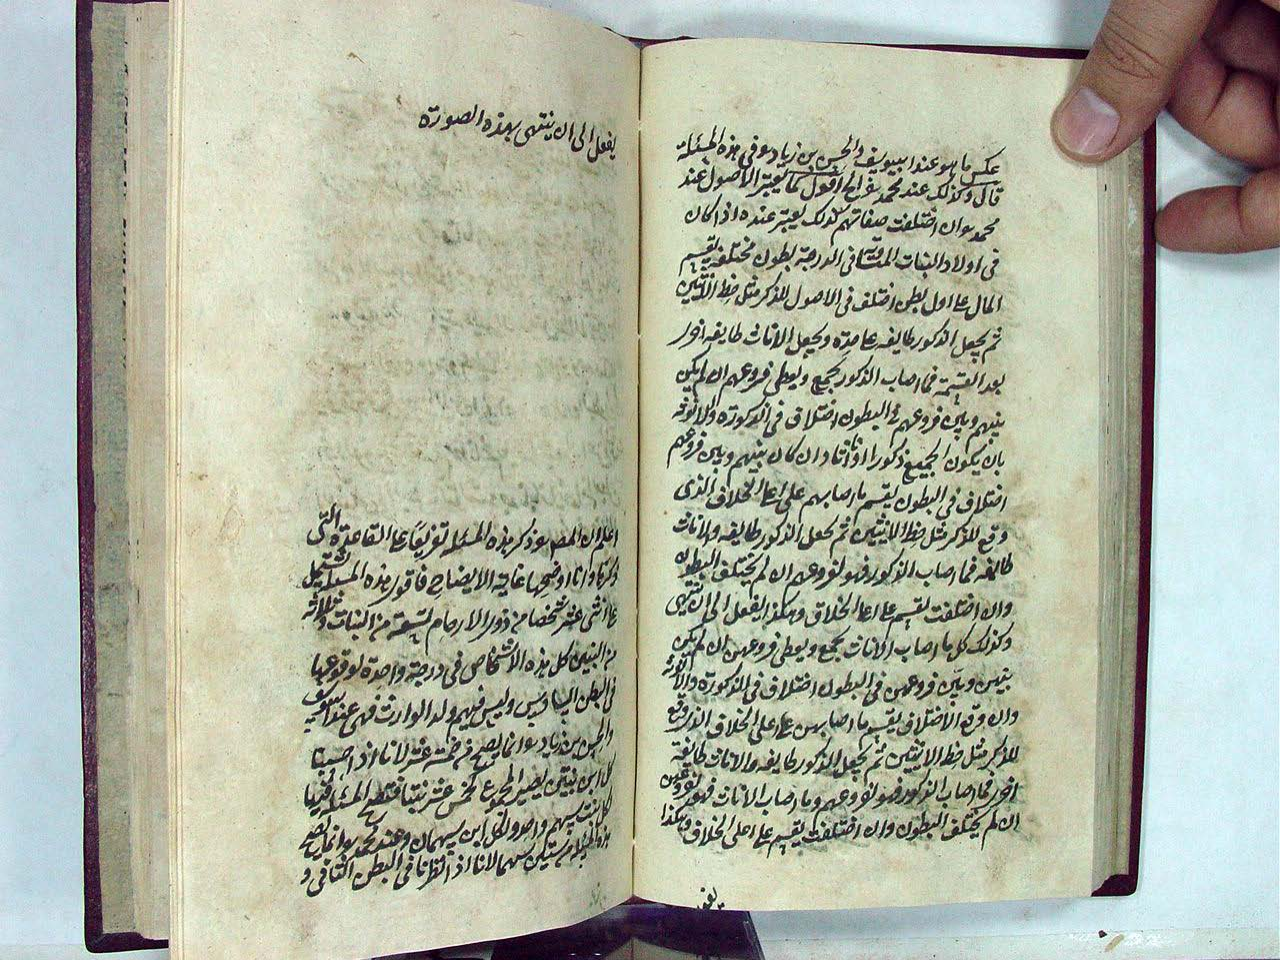 عكس ما هو عند ابيوسف والحسن بن زياد وفى هذه المسئلة
قال وكذلك عند محمد اقول كما يعتبر الاصول عند
محمد وان اختلفت صفاتهم كذلك يعتبر عنده اذا كان
فى اولاد البنات المتساوية فى الدرجة بطون مختلفة يقسم
المال على اول بطن اختلف فى الاصول للذكر مثل حظ الانثيين
ثم يجعل الذكور طايفه على حدة ويجعل الاناث طايفه اخرى
بعد القسمة فما اصاب الذكور يجمع ويعطى فروعهم ان لم يكن
بينهم وبين فروعهم فى البطون اختلاف فى الذكورة والانوثة
بان يكون الجميع ذكورا او اناثا وان كان بينهم وبين فروعهم
اختلاف فى البطون يقسم ما اصابهم على اعلى الخلاف الذى
وقع للذكر مثل حظ الانثيين ثم يجعل الذكور طايفه والاناث
طايفه فما اصاب الذكور فهو لفروعهم ان لم يختلف البطون
وان اختلفت يقسم على اعلى الخلاف وهكذا يفعل الى ان ينتهى
وكذلك كل ما اصاب الاناث يجمع ويعطى فروعهن ان لم يكن
بينهن وبين فروعهن فى البطون اختلاف فى الذكورة والانوثة
وان وقع الاختلاف يقسم ما اصابهن على اعلى الخلاف الذى وقع
للذكر مثل حظ الانثيين ثم يجعل الذكور طايفه والاناث طايفة
اخرى فما اصاب الذكور فهو لفروعهم وما اصاب الاناث فهو لفروعهن
ان لم يختلف البطون وان اختلفت يقسم على اعلى الخلاف وهكذا
يفعل
يفعل الى ان ينتهى بهذه الصورة
اعلم ان المص ذكر هذه المسئلة تفريعا على القاعدة التى
ذكرنا وانا اوضحها غاية الايضاح فاقول هذه المسئلة تشتمل
على اثنى عشر شخصا من ذوى الارحام تسعة من البنات وثلاثة
من البنين كل هذه الاشخاص فى درجة واحدة لوقوعها
فى البطن السادس وليس فيهم ولد الوارث فهى عند ابيوسف
والحسن بن زياد انما يصح من خمسة عشر لانا اذا حسبنا
كل ابن بنتين يصير المجموع كخمس عشر بنتا فتصح المسئلة فيها
لكل بنت سهم واحد ولكل ابن سهمان وعند محمد انما يصح
هذه المسئلة من ستين سهما لانا اذا نظرنا فى البطن الثانى و